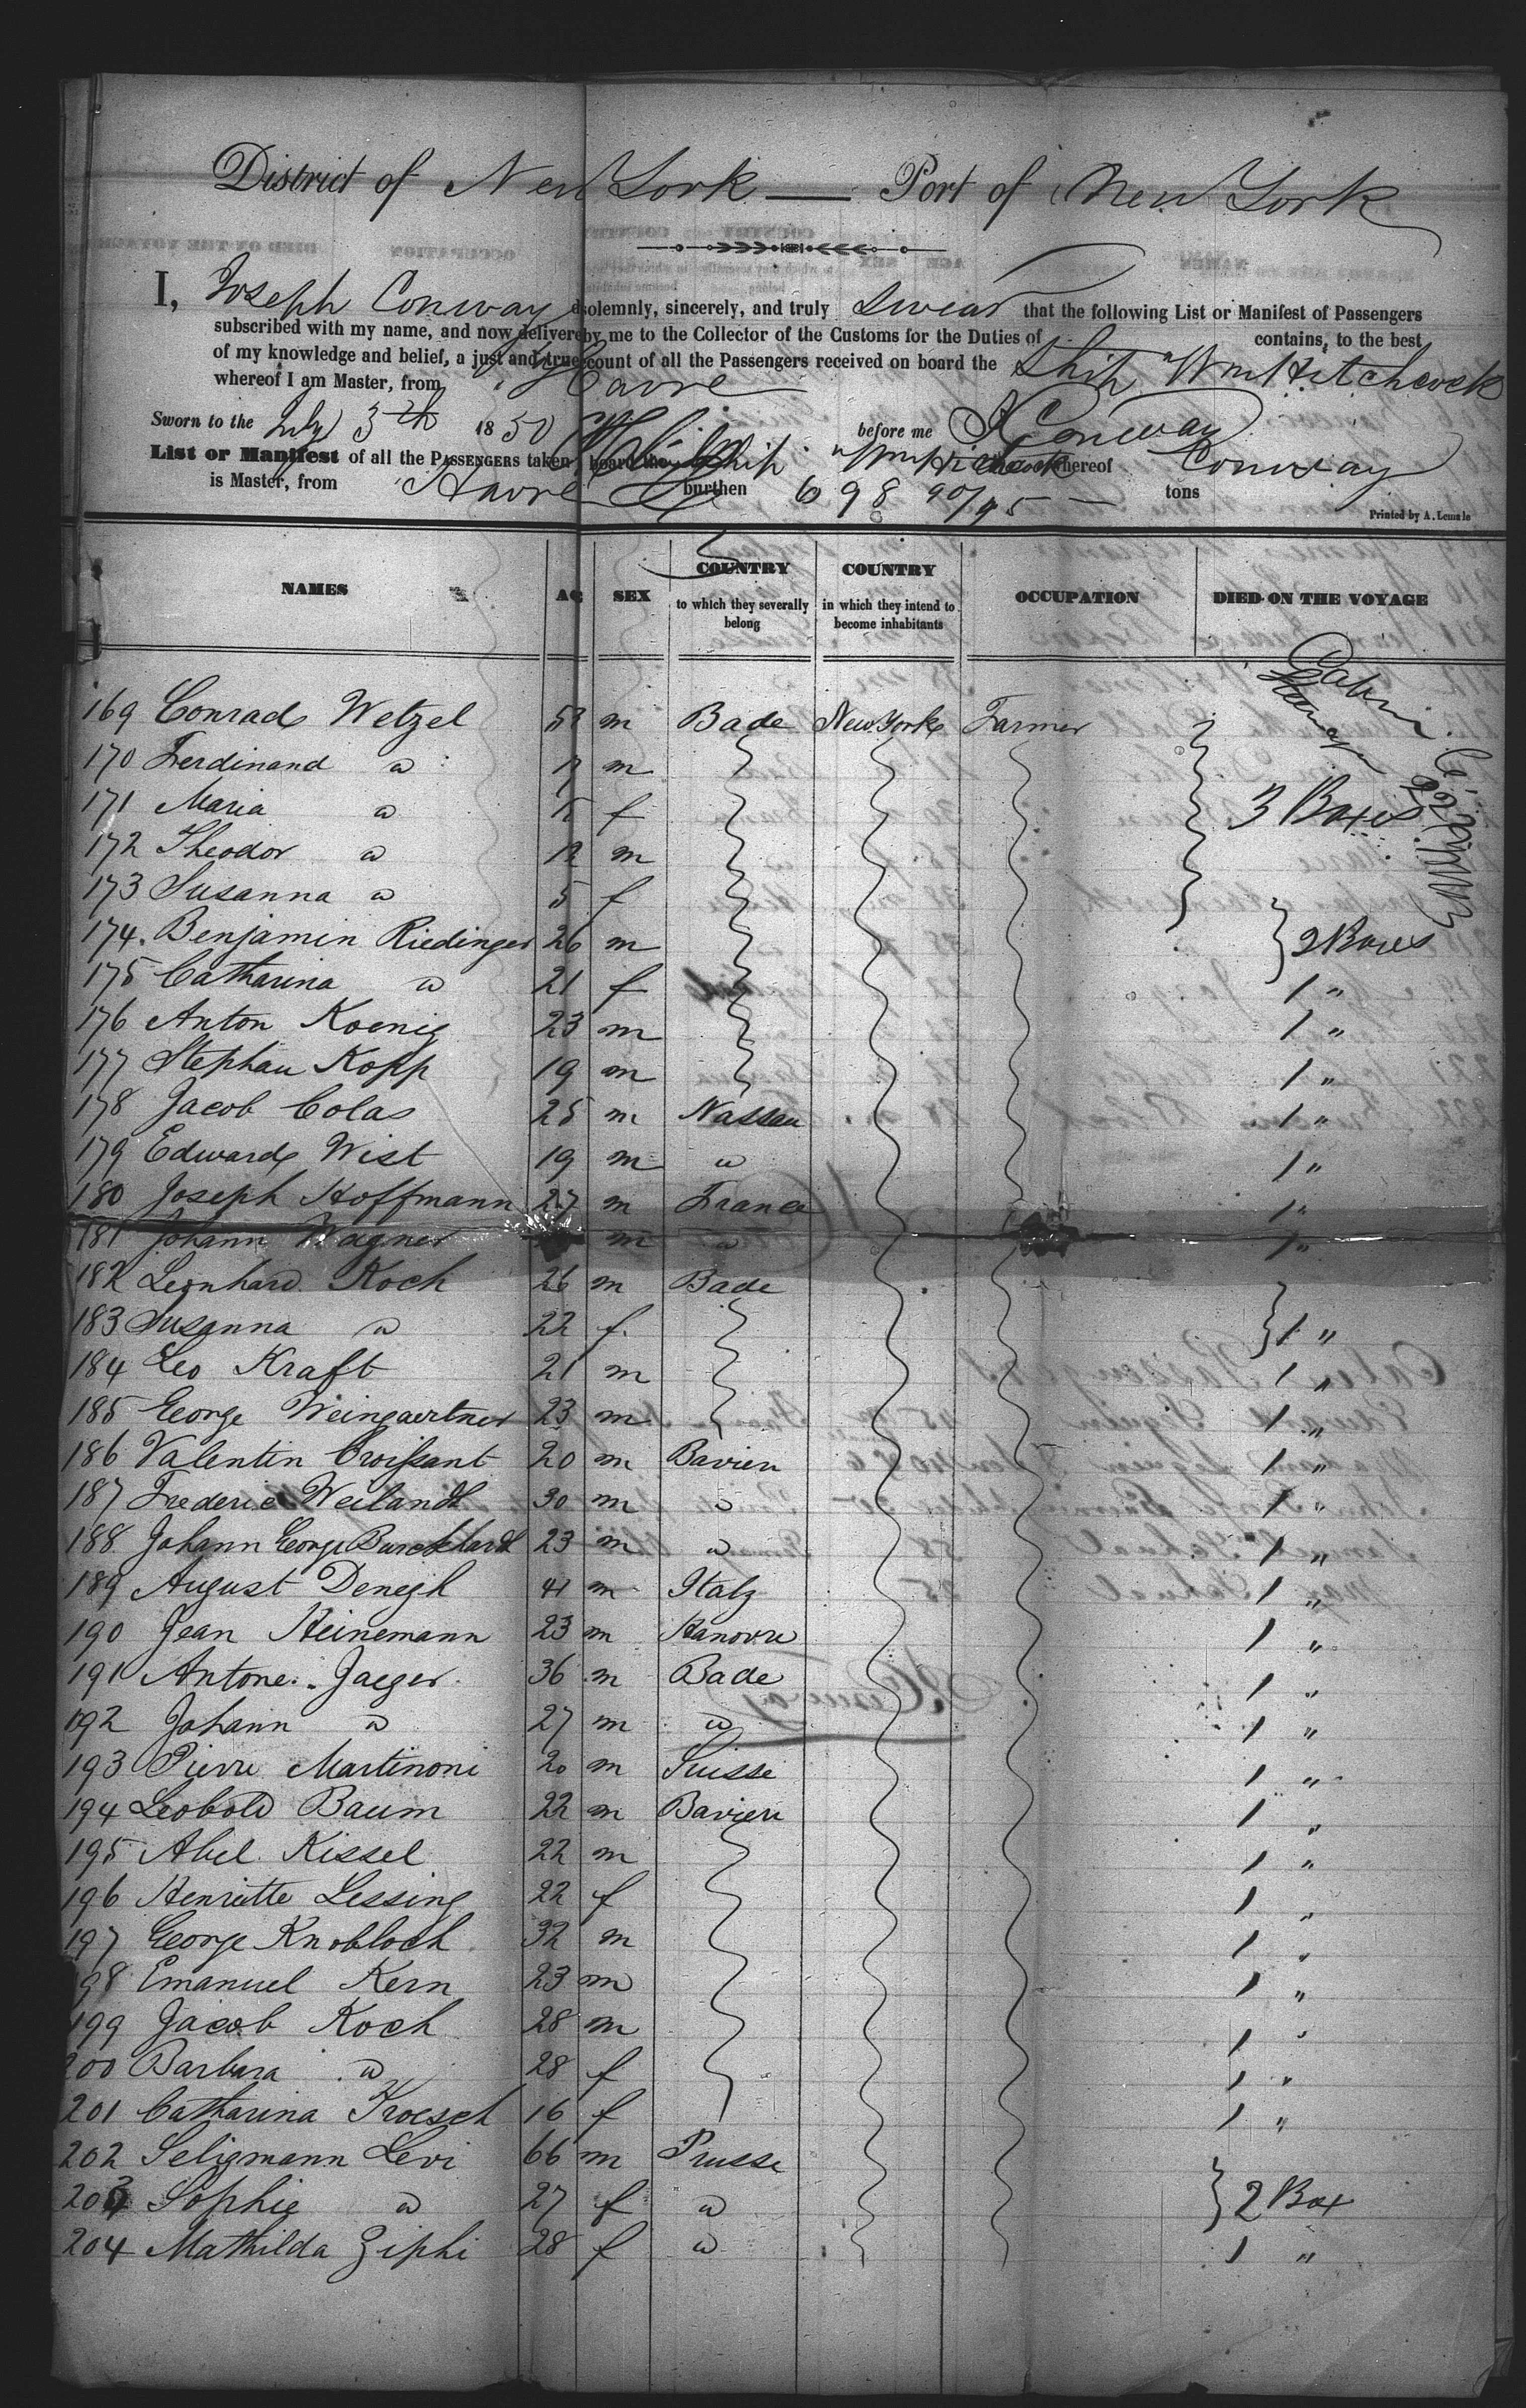 District of New York — Port of New York
I, Joseph Conway solemnly, sincerely, and truly swear that the following List or Manifest of Passengers
subscribed with my name, and now delivered by me to the Collector of the Customs for the Duties of contains, to the best
of my knowledge and belief, a just and true count of all the Passengers received on board the Ship "Wm Hitchcock
whereof I am Master, from Havre
Sworn to the July 5th 1850 before me J Conway
List or Manifest of all the PASSENGERS taken board the Ship "Wm Hitchcock whereof Conway
is Master, from Havre burthen 698 90/95 — tons
Printed by A. Lemale
NAMES AG SEX COUNTRY to which they severally belong COUNTRY in which they intend to become inhabitants OCCUPATION DIED ON THE VOYAGE
169 Conrad Wetzel m Bade New York Farmer
170 Ferdinand " m
171 Maria " f 3 Boxes
172 Theodor " m
173 Susanna " 5 f
174. Benjamin Riedinger 26 m 2 Boxes
175 Catharina " 21 f 1 "
176 Anton Koenig 23 m 1 "
177 Stephan Kopp 19 m 1 "
178 Jacob Colas 25 m Nassau 1 "
179 Edward Wist 19 m " 1 "
180 Joseph Hoffmann 27 m France 1 "
181 Johann Wagner m " 1 "
182 Leonhard Koch 26 m Bade
183 Susanna " 22 f. 1 "
184 Leo Kraft 21 m 1 "
185 George Weingaertner 23 m 1 "
186 Valentin Croissant 20 m Baviere 1 "
187 Frederic Weilandt 30 m " 1 "
188 Johann George Burckhardt 23 m " 1 "
189 August Denegh 41 m Italy 1 "
190 Jean Heinemann 23 m Hanovre 1 "
191 Antone Jaeger 36 m Bade 1 "
192 Johann " 27 m " 1 "
193 Pierre Martinoni 20 m Suisse 1 "
194 Leobold Baum 22 m Baviere 1 "
195 Abel Kissel 22 m 1 "
196 Henriette Lessing 22 f 1 "
197 George Knobloch 32 m 1 "
98 Emanuel Kern 23 m 1 "
199 Jacob Koch 28 m 1 "
200 Barbara " 28 f 1 "
201 Catharina Froesch 16 f 1 "
202 Seligmann Levi 66 m Prusse
203 Sophie " 27 f " 2 Box
204 Mathilda Ziphi 28 f " 1 "